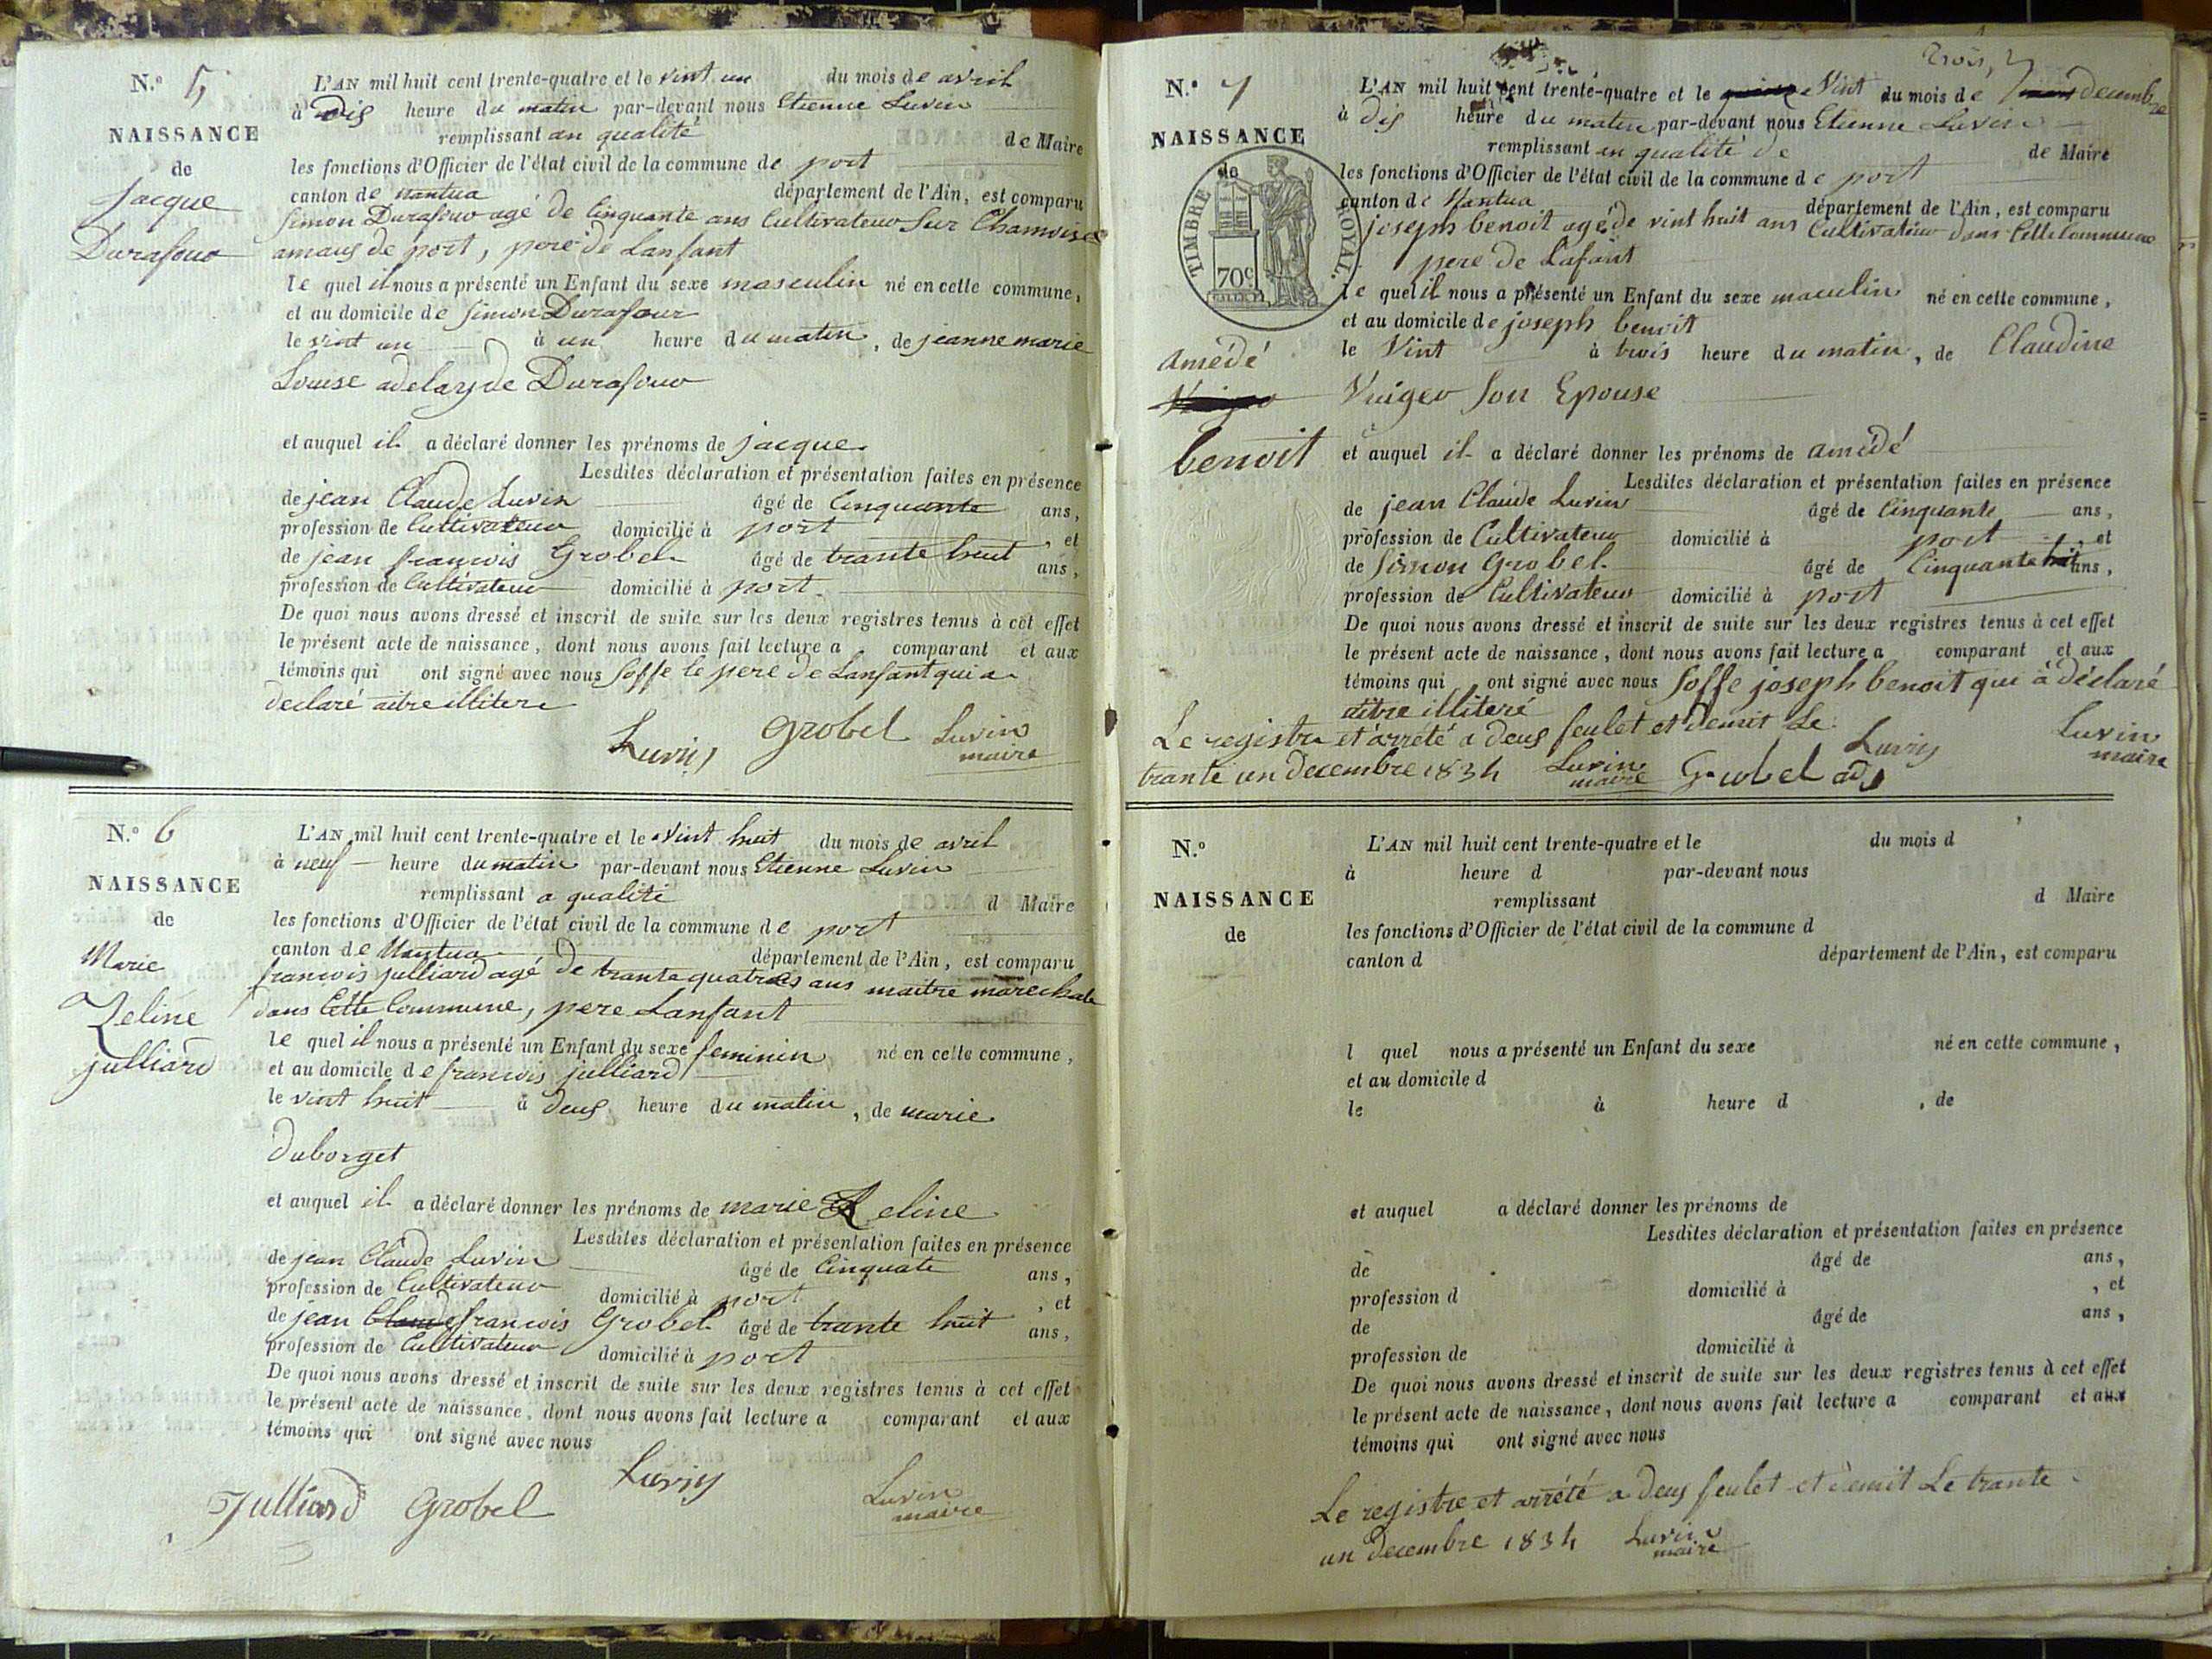 N.° 5
NAISSANCE
de
jacque
Durafour
L'AN mil huit cent trente-quatre et le vint un du mois de avril
à dis heure du matin par-devant nous Etienne Luvin
remplissant an qualité de Maire
les fonctions d'Officier de l'état civil de la commune de port
canton de Nantua département de l'Ain, est comparu
simon Durafour agé de Cinquante ans Cultivateur sur Chamoise
amaus de port, pere de Lanfant
le quel il nous a présenté un Enfant du sexe masculin né en cette commune,
et au domicile de simon Durafour
le vint un à un heure du matin, de jeanne marie
Louise adelayde Durafour
et auquel il a déclaré donner les prénoms de jacque
Lesdites déclaration et présentation faites en présence
de jean Claude Luvin âgé de Cinquante ans,
profession de Cultivateur domicilié à port, et
de jean francois Grobel âgé de trante huit ans,
profession de Cultivateur domicilié à port.
De quoi nous avons dressé et inscrit de suite sur les deux registres tenus à cet effet
le présent acte de naissance, dont nous avons fait lecture a comparant et aux
témoins qui ont signé avec nous soffe le pere de Lanfant qui a
declaré aitre illitere
Luvin grobel Luvin
maire
N.° 6
NAISSANCE
de
Marie
Zeline
julliard
L'AN mil huit cent trente-quatre et le vint huit du mois de avril
à neuf heure du matin par-devant nous Etienne Luvin
remplissant a qualité d Maire
les fonctions d'Officier de l'état civil de la commune de port
canton de Nantua département de l'Ain, est comparu
francois julliard agé de trante quatres ans maitre marechale
dans Cette Commune, pere Lanfant
le quel il nous a présenté un Enfant du sexe feminin né en cette commune,
et au domicile de francois julliard
le vint huit à deus heure du matin, de marie
Duborget
et auquel il a déclaré donner les prénoms de marie Zeline
Lesdites déclaration et présentation faites en présence
de jean Claude Luvin âgé de Cinquate ans,
profession de Cultivateur domicilié à port, et
de jean francois Grobel âgé de trante huit ans,
profession de Cultivateur domicilié à port
De quoi nous avons dressé et inscrit de suite sur les deux registres tenus à cet effet
le présent acte de naissance, dont nous avons fait lecture a comparant et aux
témoins qui ont signé avec nous
Julliard grobel Luvin Luvin
maire
trois
N.° 7
NAISSANCE
de
TIMBRE ROYAL.
70c
amédé
benoit
L'AN mil huit cent trente-quatre et le Vint du mois de decembre
à dis heure du matin par-devant nous Etienne Luvin
remplissant en qualité de de Maire
les fonctions d'Officier de l'état civil de la commune de port
canton de Nantua département de l'Ain, est comparu
joseph benoit agé de vint huit ans Cultivateur dans Cette Commune
pere de Lafant
le quel il nous a présenté un Enfant du sexe maculin né en cette commune,
et au domicile de joseph benoit
le Vint à trois heure du matin, de Claudine
Vuiger son Epouse
et auquel il a déclaré donner les prénoms de amédé
Lesdites déclaration et présentation faites en présence
de jean Claude Luvin âgé de Cinquante ans,
profession de Cultivateur domicilié à port, et
de simon grobel âgé de Cinquante huit ans,
profession de Cultivateur domicilié à port
De quoi nous avons dressé et inscrit de suite sur les deux registres tenus à cet effet
le présent acte de naissance, dont nous avons fait lecture a comparant et aux
témoins qui ont signé avec nous soffe joseph benoit qui à déclaré
aitre illiteré
Le registre et arreté a deus feulet et demit Le
trante un decembre 1834 Luvin
maire Grobel adj Luvin Luvin
maire
N.°
NAISSANCE
de
L'AN mil huit cent trente-quatre et le du mois d
à heure d par-devant nous
remplissant d Maire
les fonctions d'Officier de l'état civil de la commune d
canton d département de l'Ain, est comparu
l quel nous a présenté un Enfant du sexe né en cette commune,
et au domicile d
le à heure d , de
et auquel a déclaré donner les prénoms de
Lesdites déclaration et présentation faites en présence
de âgé de ans,
profession d domicilié à , et
de âgé de ans,
profession de domicilié à
De quoi nous avons dressé et inscrit de suite sur les deux registres tenus à cet effet
le présent acte de naissance, dont nous avons fait lecture a comparant et aux
témoins qui ont signé avec nous
Le registre et arrété a deus feulet et demit Le trante
un decembre 1834 Luvin
maire